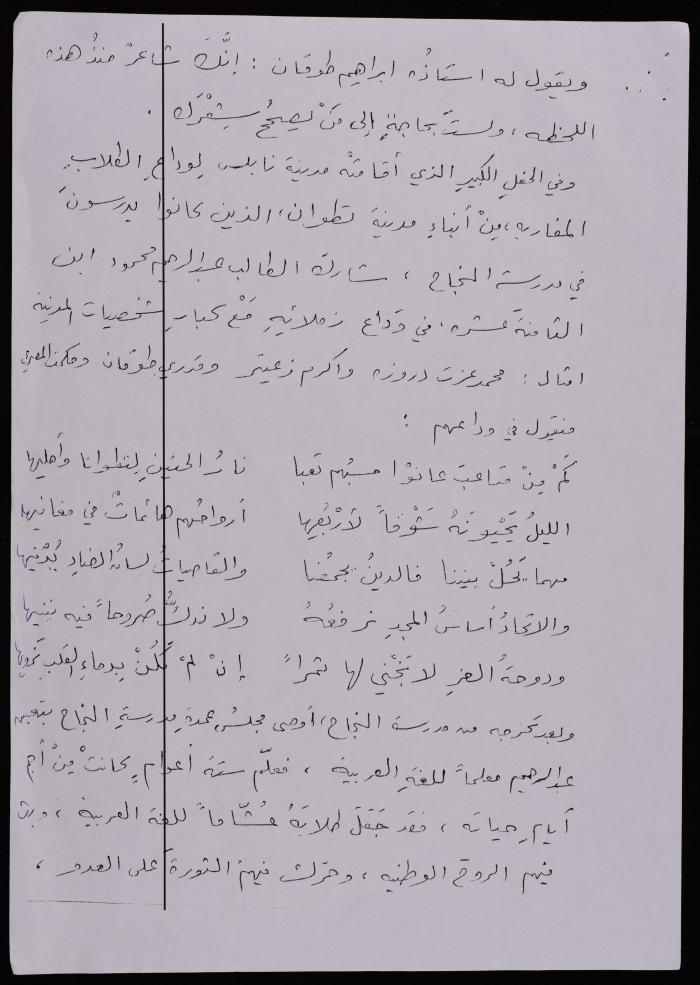 ويقول له استاذُه ابراهيم طوقان : إنَّكَ شاعرٌ منذُ هذه
اللحظه ، ولستَ بحاجةٍ إلى مَنْ يصححُ شِعْرَك .
وفي الحفلِ الكبيرِ الذي أقامَتْه مدينة نابلس لِوداعِ الطلابِ
المغاربه ، مِنْ أبناءِ مدينةِ تطوان ، الذين كانوا يدرسونَ
في مدرسة النجاح ، شاركَ الطالب عبدالرحيم محمود ابن
الثامنةَ عشره ، في وَداع زملائِهِ مَعْ كبارِ شخصيات المدينة
امثال : محمد عزت دروزه واكرم زعيتر وقدري طوقان وحكمت المصري
فيقول في وداعهم :
كَمْ مِنْ متاعبَ عانوْا حسبُهم تعبا نارُ الحنينِ لِتطوانا وأهليها
الليلُ يَحْيونَهُ شَوْقاً لأرْبُعِها أرواحُهم هائماتٌ في مغانيها
مهما يَحُلْ بيننا فالدينُ يجمعُنا والقاصياتُ لسانُ الضادِ يُدْنيها
والاتحادُ أساسُ المجدِ نرفعُهُ ولا نَدُكُّ صُروحاً فيه نبنيها
ودوحةُ العزِ لا تَجْني لها ثمراً إنْ لمْ تَكُنْ بِدماءِ القلبِ تَرويها
وبعد تخرجه من مدرسة النجاح ، أوصى مجلسُ عمدةِ مدرسةِ النجاح بتعيين
عبدالرحيم معلماً للغةِ العربية ، فعلّم ستة أعوامٍ كانتْ مِنْ أهم
أيامِ حياته ، فقد جَعَلَ طلابَهُ عُشّاقاً للغة العربية ، وبث
فيهم الروحَ الوطنيه ، وحرّك فيهمْ الثورةَ على العدو ،